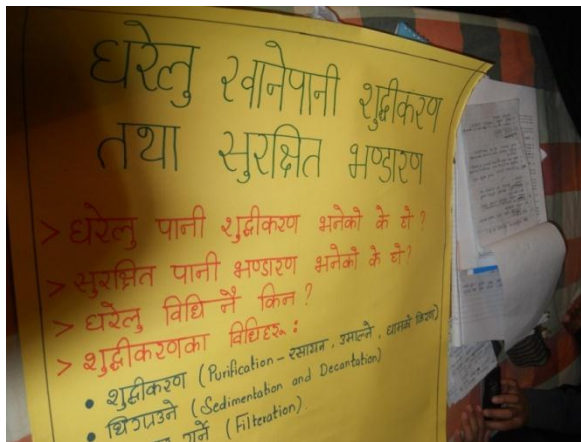 घरेलु खानेपानी शुद्धीकरण
तथा सुरक्षित भण्डारण
> घरेलु पानी शुद्धीकरण भनेको के हो ?
> सुरक्षित पानी भण्डारण भनेको के हो?
> घरेलु विधि नै किन ?
> शुद्धीकरणका विधिहरू :
• शुद्धीकरण (Purification - रसायन , उमाल्ने , घामको किरण)
• थिग्राउने (Sedimentation and Decantation)
गर्ने (Filteration).